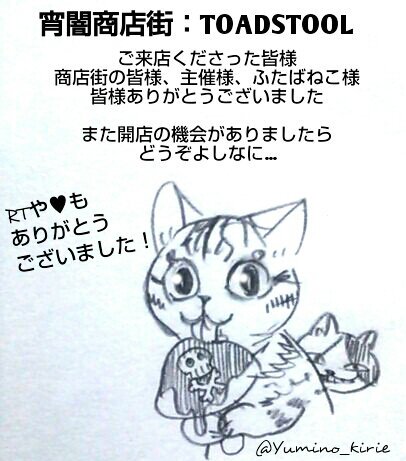 宵闇商店街：TOADSTOOL
ご来店くださった皆様
商店街の皆様、主催様、ふたばねこ様
皆様ありがとうございました
また開店の機会がありましたら
どうぞよしなに...
RTや♥も
ありがとう
ございました！
@Yumino_kirie